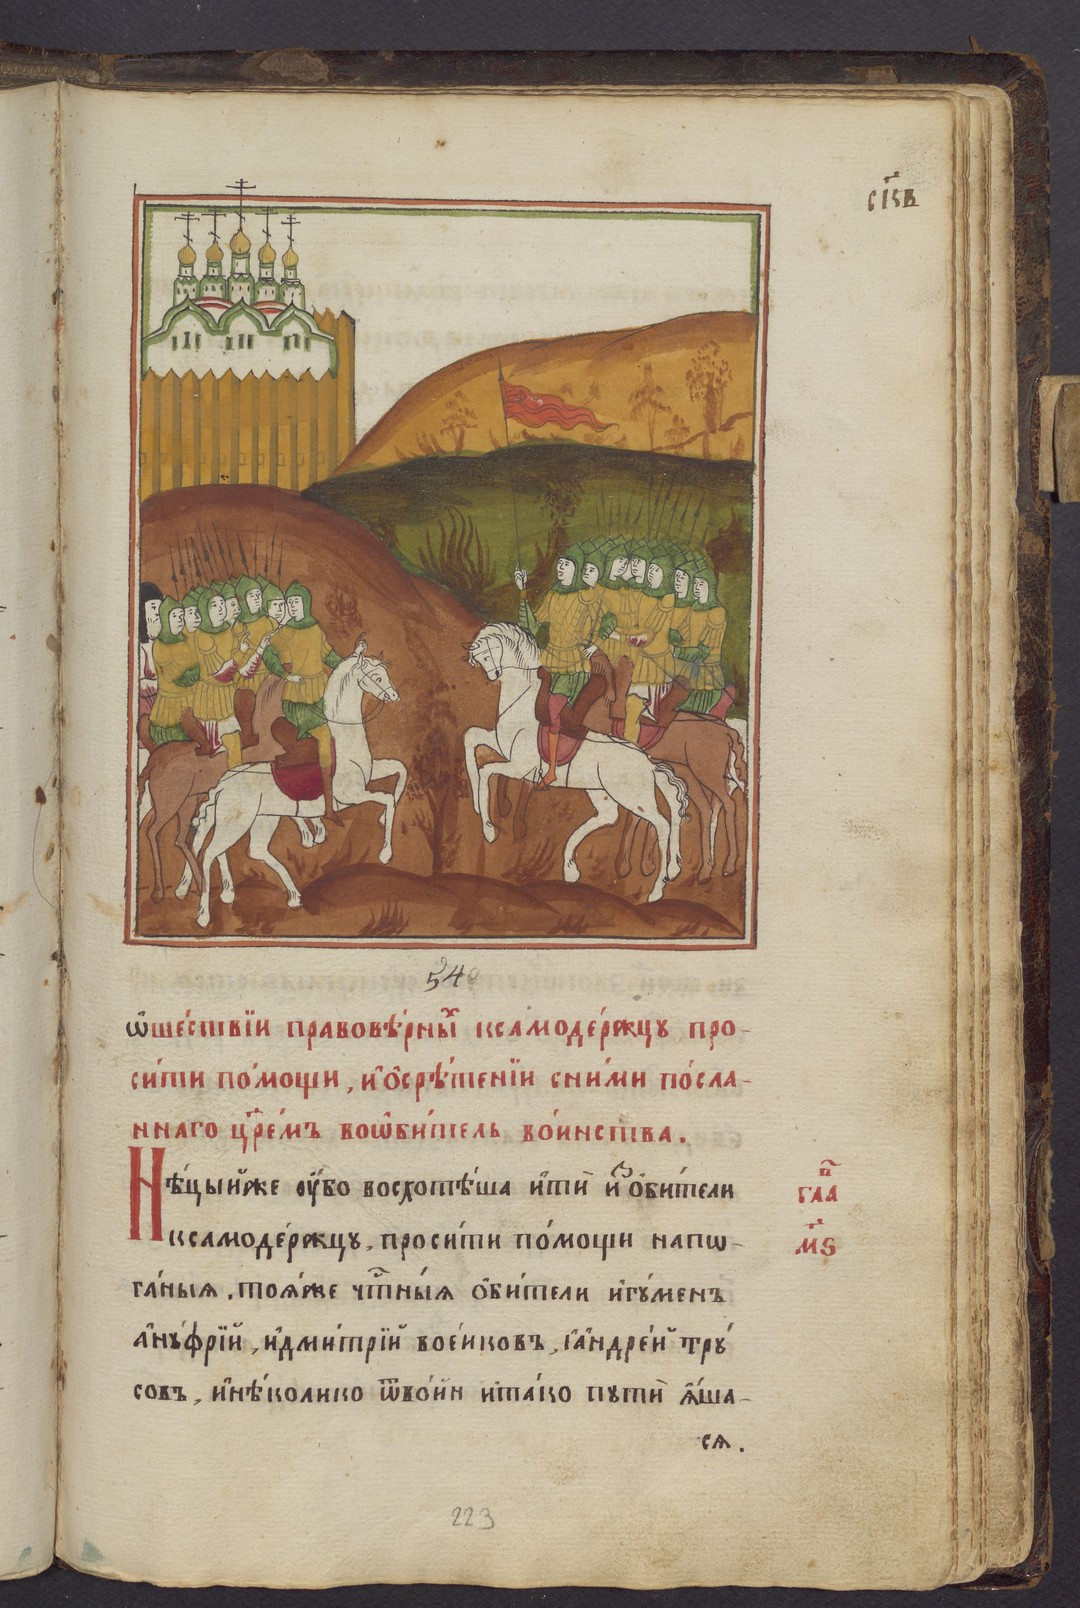 сi҃ѕв
54
ѡ҆ше́ствїи правовѣ́рны́х ксамоде́ржцу про-
си́ти по́мощи, и҆ ѻ҆срѣ́тенїи сни́ми по́сла-
ннаго цр҃е́мъ воѡ҆би́тель во́инства.
Нѣ́цыи́же ᲂу҆́бо восхотѣ́ша и҆ти̏ и҆з̾ ѻ҆би́тели
ксамоде́ржцу, проси́ти по́мощи напѡ-
га́ныѧ, тоѧ́же чт҃ны́ѧ ѻ҆би́тели и҆гу́менъ
а҆ну́фрїй, и҆дми́трїй вое́иковъ, і҆андре́й тру́
совъ, и҆нѣ́колико ѿво́ин ита́ко пути̏ ꙗ҆́ша-
сѧ.
гла
м҃ѕ
223